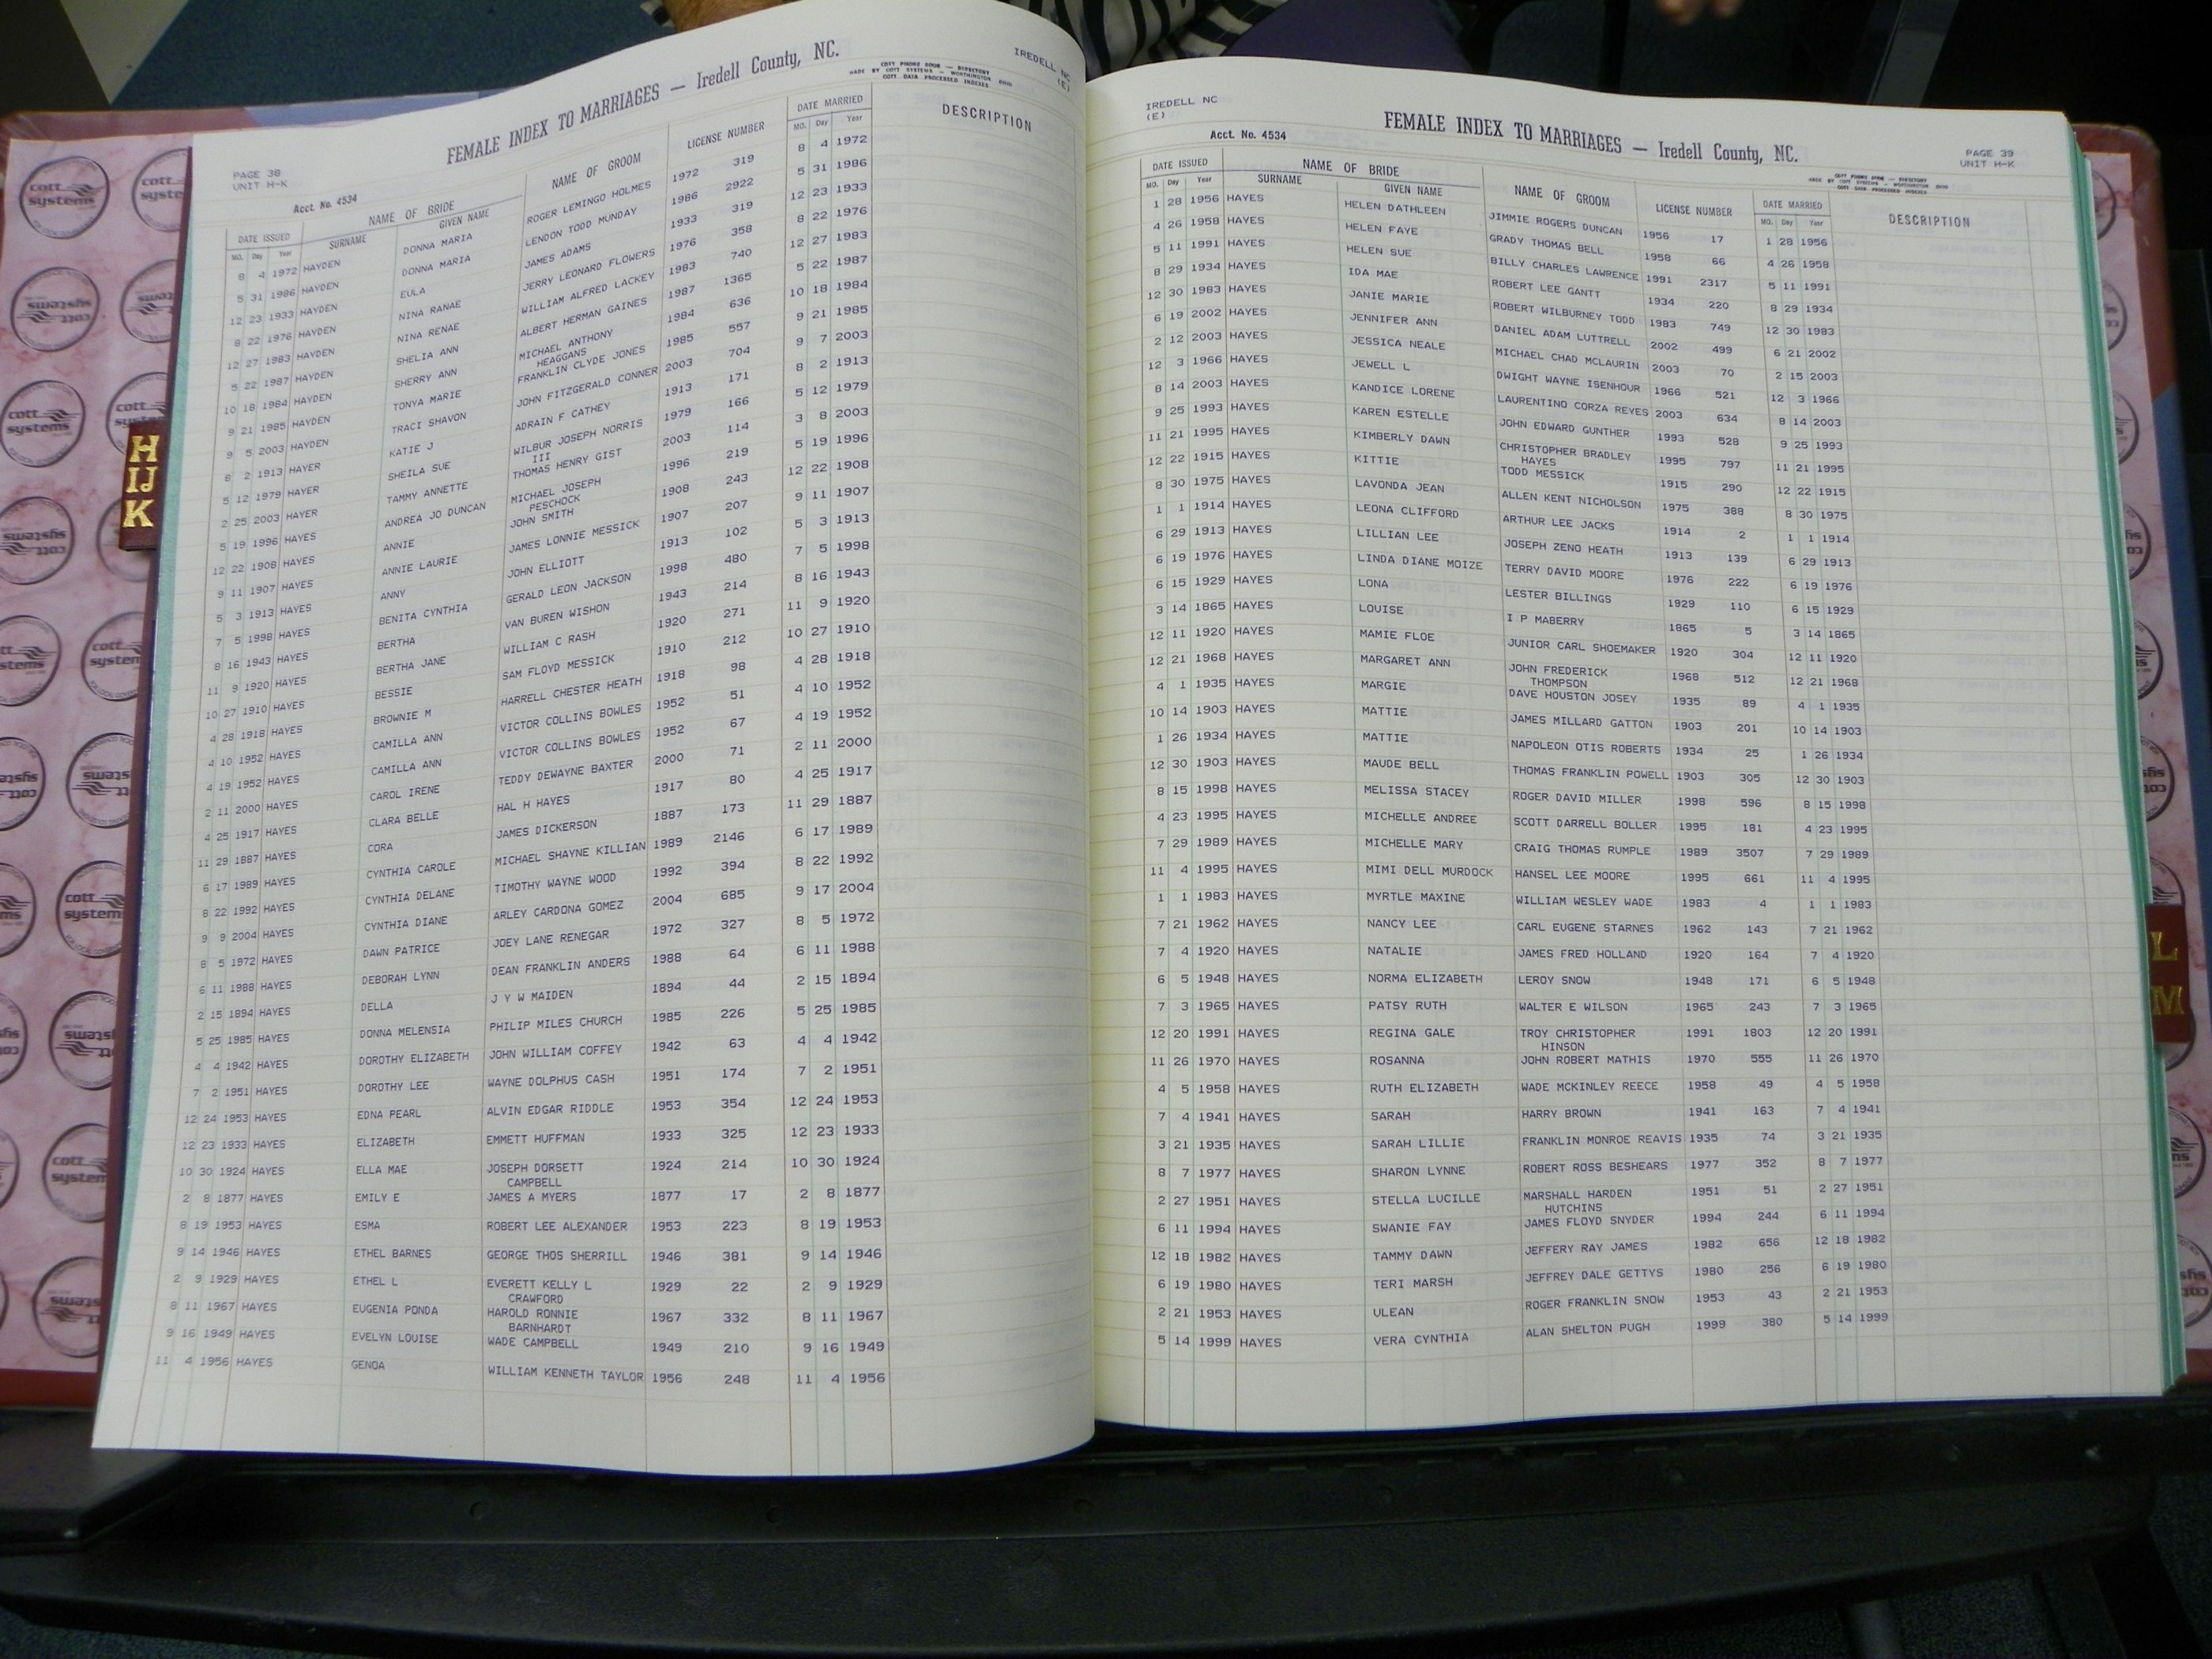 PAGE 38
UNIT H-K
FEMALE INDEX TO MARRIAGES — Iredell County, NC.
COTT PHONE BOOK — DIRECTORY
MADE BY COTT SYSTEMS — WORTHINGTON OHIO
COTT DATA PROCESSED INDEXES
IREDELL NC
(E)
Acct. No. 4534
DATE ISSUED NAME OF BRIDE NAME OF GROOM LICENSE NUMBER DATE MARRIED DESCRIPTION
MO. Day Year SURNAME GIVEN NAME MO. Day Year
8 4 1972 HAYDEN DONNA MARIA ROGER LEMINGO HOLMES 1972 319 8 4 1972
5 31 1986 HAYDEN DONNA MARIA LENDON TODD MUNDAY 1986 2922 5 31 1986
12 23 1933 HAYDEN EULA JAMES ADAMS 1933 319 12 23 1933
8 22 1976 HAYDEN NINA RANAE JERRY LEONARD FLOWERS 1976 358 8 22 1976
12 27 1983 HAYDEN NINA RENAE WILLIAM ALFRED LACKEY 1983 740 12 27 1983
5 22 1987 HAYDEN SHELIA ANN ALBERT HERMAN GAINES 1987 1365 5 22 1987
10 18 1984 HAYDEN SHERRY ANN MICHAEL ANTHONY 1984 636 10 18 1984
HEAGGANS
9 21 1985 HAYDEN TONYA MARIE FRANKLIN CLYDE JONES 1985 557 9 21 1985
9 5 2003 HAYDEN TRACI SHAVON JOHN FITZGERALD CONNER 2003 704 9 7 2003
8 2 1913 HAYER KATIE J ADRAIN F CATHEY 1913 171 8 2 1913
5 12 1979 HAYER SHEILA SUE WILBUR JOSEPH NORRIS 1979 166 5 12 1979
III
2 25 2003 HAYER TAMMY ANNETTE THOMAS HENRY GIST 2003 114 3 8 2003
5 19 1996 HAYES ANDREA JO DUNCAN MICHAEL JOSEPH 1996 219 5 19 1996
PESCHOCK
12 22 1908 HAYES ANNIE JOHN SMITH 1908 243 12 22 1908
9 11 1907 HAYES ANNIE LAURIE JAMES LONNIE MESSICK 1907 207 9 11 1907
5 3 1913 HAYES ANNY JOHN ELLIOTT 1913 102 5 3 1913
7 5 1998 HAYES BENITA CYNTHIA GERALD LEON JACKSON 1998 480 7 5 1998
8 16 1943 HAYES BERTHA VAN BUREN WISHON 1943 214 8 16 1943
11 9 1920 HAYES BERTHA JANE WILLIAM C RASH 1920 271 11 9 1920
10 27 1910 HAYES BESSIE SAM FLOYD MESSICK 1910 212 10 27 1910
4 28 1918 HAYES BROWNIE M HARRELL CHESTER HEATH 1918 98 4 28 1918
4 10 1952 HAYES CAMILLA ANN VICTOR COLLINS BOWLES 1952 51 4 10 1952
4 19 1952 HAYES CAMILLA ANN VICTOR COLLINS BOWLES 1952 67 4 19 1952
2 11 2000 HAYES CAROL IRENE TEDDY DEWAYNE BAXTER 2000 71 2 11 2000
4 25 1917 HAYES CLARA BELLE HAL H HAYES 1917 80 4 25 1917
11 29 1887 HAYES CORA JAMES DICKERSON 1887 173 11 29 1887
6 17 1989 HAYES CYNTHIA CAROLE MICHAEL SHAYNE KILLIAN 1989 2146 6 17 1989
8 22 1992 HAYES CYNTHIA DELANE TIMOTHY WAYNE WOOD 1992 394 8 22 1992
9 9 2004 HAYES CYNTHIA DIANE ARLEY CARDONA GOMEZ 2004 685 9 17 2004
8 5 1972 HAYES DAWN PATRICE JOEY LANE RENEGAR 1972 327 8 5 1972
6 11 1988 HAYES DEBORAH LYNN DEAN FRANKLIN ANDERS 1988 64 6 11 1988
2 15 1894 HAYES DELLA J Y W MAIDEN 1894 44 2 15 1894
5 25 1985 HAYES DONNA MELENSIA PHILIP MILES CHURCH 1985 226 5 25 1985
4 4 1942 HAYES DOROTHY ELIZABETH JOHN WILLIAM COFFEY 1942 63 4 4 1942
7 2 1951 HAYES DOROTHY LEE WAYNE DOLPHUS CASH 1951 174 7 2 1951
12 24 1953 HAYES EDNA PEARL ALVIN EDGAR RIDDLE 1953 354 12 24 1953
12 23 1933 HAYES ELIZABETH EMMETT HUFFMAN 1933 325 12 23 1933
10 30 1924 HAYES ELLA MAE JOSEPH DORSETT 1924 214 10 30 1924
CAMPBELL
2 8 1877 HAYES EMILY E JAMES A MYERS 1877 17 2 8 1877
8 19 1953 HAYES ESMA ROBERT LEE ALEXANDER 1953 223 8 19 1953
9 14 1946 HAYES ETHEL BARNES GEORGE THOS SHERRILL 1946 381 9 14 1946
2 9 1929 HAYES ETHEL L EVERETT KELLY L 1929 22 2 9 1929
CRAWFORD
8 11 1967 HAYES EUGENIA PONDA HAROLD RONNIE 1967 332 8 11 1967
BARNHARDT
9 16 1949 HAYES EVELYN LOUISE WADE CAMPBELL 1949 210 9 16 1949
11 4 1956 HAYES GENOA WILLIAM KENNETH TAYLOR 1956 248 11 4 1956
IREDELL NC
(E)
FEMALE INDEX TO MARRIAGES — Iredell County, NC.
PAGE 39
UNIT H-K
Acct. No. 4534
COTT PHONE BOOK — DIRECTORY
MADE BY COTT SYSTEMS — WORTHINGTON OHIO
COTT DATA PROCESSED INDEXES
DATE ISSUED NAME OF BRIDE NAME OF GROOM LICENSE NUMBER DATE MARRIED DESCRIPTION
MO. Day Year SURNAME GIVEN NAME MO. Day Year
1 28 1956 HAYES HELEN DATHLEEN JIMMIE ROGERS DUNCAN 1956 17 1 28 1956
4 26 1958 HAYES HELEN FAYE GRADY THOMAS BELL 1958 66 4 26 1958
5 11 1991 HAYES HELEN SUE BILLY CHARLES LAWRENCE 1991 2317 5 11 1991
8 29 1934 HAYES IDA MAE ROBERT LEE GANTT 1934 220 8 29 1934
12 30 1983 HAYES JANIE MARIE ROBERT WILBURNEY TODD 1983 749 12 30 1983
6 19 2002 HAYES JENNIFER ANN DANIEL ADAM LUTTRELL 2002 499 6 21 2002
2 12 2003 HAYES JESSICA NEALE MICHAEL CHAD MCLAURIN 2003 70 2 15 2003
12 3 1966 HAYES JEWELL L DWIGHT WAYNE ISENHOUR 1966 521 12 3 1966
8 14 2003 HAYES KANDICE LORENE LAURENTINO CORZA REYES 2003 634 8 14 2003
9 25 1993 HAYES KAREN ESTELLE JOHN EDWARD GUNTHER 1993 528 9 25 1993
11 21 1995 HAYES KIMBERLY DAWN CHRISTOPHER BRADLEY 1995 797 11 21 1995
HAYES
12 22 1915 HAYES KITTIE TODD MESSICK 1915 290 12 22 1915
8 30 1975 HAYES LAVONDA JEAN ALLEN KENT NICHOLSON 1975 388 8 30 1975
1 1 1914 HAYES LEONA CLIFFORD ARTHUR LEE JACKS 1914 2 1 1 1914
6 29 1913 HAYES LILLIAN LEE JOSEPH ZENO HEATH 1913 139 6 29 1913
6 19 1976 HAYES LINDA DIANE MOIZE TERRY DAVID MOORE 1976 222 6 19 1976
6 15 1929 HAYES LONA LESTER BILLINGS 1929 110 6 15 1929
3 14 1865 HAYES LOUISE I P MABERRY 1865 5 3 14 1865
12 11 1920 HAYES MAMIE FLOE JUNIOR CARL SHOEMAKER 1920 304 12 11 1920
12 21 1968 HAYES MARGARET ANN JOHN FREDERICK 1968 512 12 21 1968
THOMPSON
4 1 1935 HAYES MARGIE DAVE HOUSTON JOSEY 1935 89 4 1 1935
10 14 1903 HAYES MATTIE JAMES MILLARD GATTON 1903 201 10 14 1903
1 26 1934 HAYES MATTIE NAPOLEON OTIS ROBERTS 1934 25 1 26 1934
12 30 1903 HAYES MAUDE BELL THOMAS FRANKLIN POWELL 1903 305 12 30 1903
8 15 1998 HAYES MELISSA STACEY ROGER DAVID MILLER 1998 596 8 15 1998
4 23 1995 HAYES MICHELLE ANDREE SCOTT DARRELL BOLLER 1995 181 4 23 1995
7 29 1989 HAYES MICHELLE MARY CRAIG THOMAS RUMPLE 1989 3507 7 29 1989
11 4 1995 HAYES MIMI DELL MURDOCK HANSEL LEE MOORE 1995 661 11 4 1995
1 1 1983 HAYES MYRTLE MAXINE WILLIAM WESLEY WADE 1983 4 1 1 1983
7 21 1962 HAYES NANCY LEE CARL EUGENE STARNES 1962 143 7 21 1962
7 4 1920 HAYES NATALIE JAMES FRED HOLLAND 1920 164 7 4 1920
6 5 1948 HAYES NORMA ELIZABETH LEROY SNOW 1948 171 6 5 1948
7 3 1965 HAYES PATSY RUTH WALTER E WILSON 1965 243 7 3 1965
12 20 1991 HAYES REGINA GALE TROY CHRISTOPHER 1991 1803 12 20 1991
HINSON
11 26 1970 HAYES ROSANNA JOHN ROBERT MATHIS 1970 555 11 26 1970
4 5 1958 HAYES RUTH ELIZABETH WADE MCKINLEY REECE 1958 49 4 5 1958
7 4 1941 HAYES SARAH HARRY BROWN 1941 163 7 4 1941
3 21 1935 HAYES SARAH LILLIE FRANKLIN MONROE REAVIS 1935 74 3 21 1935
8 7 1977 HAYES SHARON LYNNE ROBERT ROSS BESHEARS 1977 352 8 7 1977
2 27 1951 HAYES STELLA LUCILLE MARSHALL HARDEN 1951 51 2 27 1951
HUTCHINS
6 11 1994 HAYES SWANIE FAY JAMES FLOYD SNYDER 1994 244 6 11 1994
12 18 1982 HAYES TAMMY DAWN JEFFERY RAY JAMES 1982 656 12 18 1982
6 19 1980 HAYES TERI MARSH JEFFREY DALE GETTYS 1980 256 6 19 1980
2 21 1953 HAYES ULEAN ROGER FRANKLIN SNOW 1953 43 2 21 1953
5 14 1999 HAYES VERA CYNTHIA ALAN SHELTON PUGH 1999 380 5 14 1999
H
IJ
K
L
M
cott systems